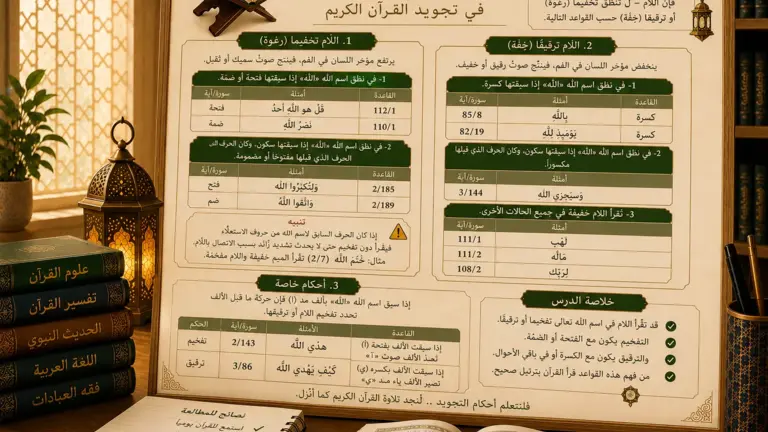 في تجويد القرآن الكريم
فإن اللام – ل تنطق تفخيما (رغوة)
أو ترقيقا (خِفَّة) حسب القواعد التالية.
1. اللام تخفيما (رغوة)
يرتفع مؤخر اللسان في الفم، فينتج صوتٌ سميك أو ثقيل.
1- في نطق اسم الله «الله» إذا سبقتها فتحة أو ضمّة.
القاعدة أمثلة سورة/آية
فتحة قُلْ هو اللَّه أحدٌ 112/1
ضمة نَصْرُ اللَّهِ 110/1
2- في نطق اسم الله «الله» إذا سبقتها سكون، وكان الحرف
الحرف الذي قبلها مفتوحًا أو مضمومة.
القاعدة أمثلة سورة/آية
فتح وَلِتُكَبِّرُوا اللَّه 2/185
ضم وَاتَّقُوا اللَّهَ 2/189
تنبيه
إذا كان الحرف السابق لاسم الله من حروف الاستعلاء
فيقرأ دون تفخيم حتى لا يحدث تشديد زائد بسبب الاتصال باللّام.
مثال: خَتَمَ اللَّه (2/7) تقرأ الميم خفيفة واللام مفخمة.
2. اللام ترقيقًا (خِفَّة)
ينخفض مؤخر اللسان في الفم، فينتج صوتٌ رقيق أو خفيف.
1- في نطق اسم الله «الله» إذا سبقتها كسرة.
القاعدة أمثلة سورة/آية
كسرة بِاللَّهِ 85/8
كسرة يَوْمَئِذٍ لِلَّهِ 82/19
2- في نطق اسم الله «الله» إذا سبقتها سكون، وكان الحرف الذي قبلها
مكسورًا.
القاعدة أمثلة سورة/آية
وَسيَجزِي الله 3/144
3- تُقرأ اللام خفيفة في جميع الحالات الأخرى.
لَهَبٍ 111/1
مَالُه 111/2
لِرَبِّكَ 108/2
3. أحكام خاصة
إذا سبق اسم الله «الله» بألف مد (ا) فإن حركة ما قبل الألف
تحدد تفخيم اللام أو ترقيقها.
القاعدة الأمثلة سورة/آية الحكم
إذا سبقت الألف بفتحة (ا) هدَي اللَّه 2/143 تفخيم
إذا سبقت الألف بكسره (ي) كَيْفَ يَهْدي اللَّه 3/86 ترقيق
تصير الألف ياء مد «ي»
خلاصة الدرس
قد تقرأ اللام في اسم الله تعالى تفخيما أو ترقيقًا.
التفخيم يكون مع الفتحة أو الضمّة.
والترقيق يكون مع الكسرة أو في باقي الأحوال.
من فهم هذه القواعد قرأ القرآن بترتيل صحيح.
فلنتعلم أحكام التجويد .. لنجد تلاوة القرآن الكريم كما أُنْزِل.
علوم القرآن
تفسير القرآن
الحديث النبوي
اللغة العربية
فقه العبادات
نصائح للمطالعة
استمع للقرآن يوميا